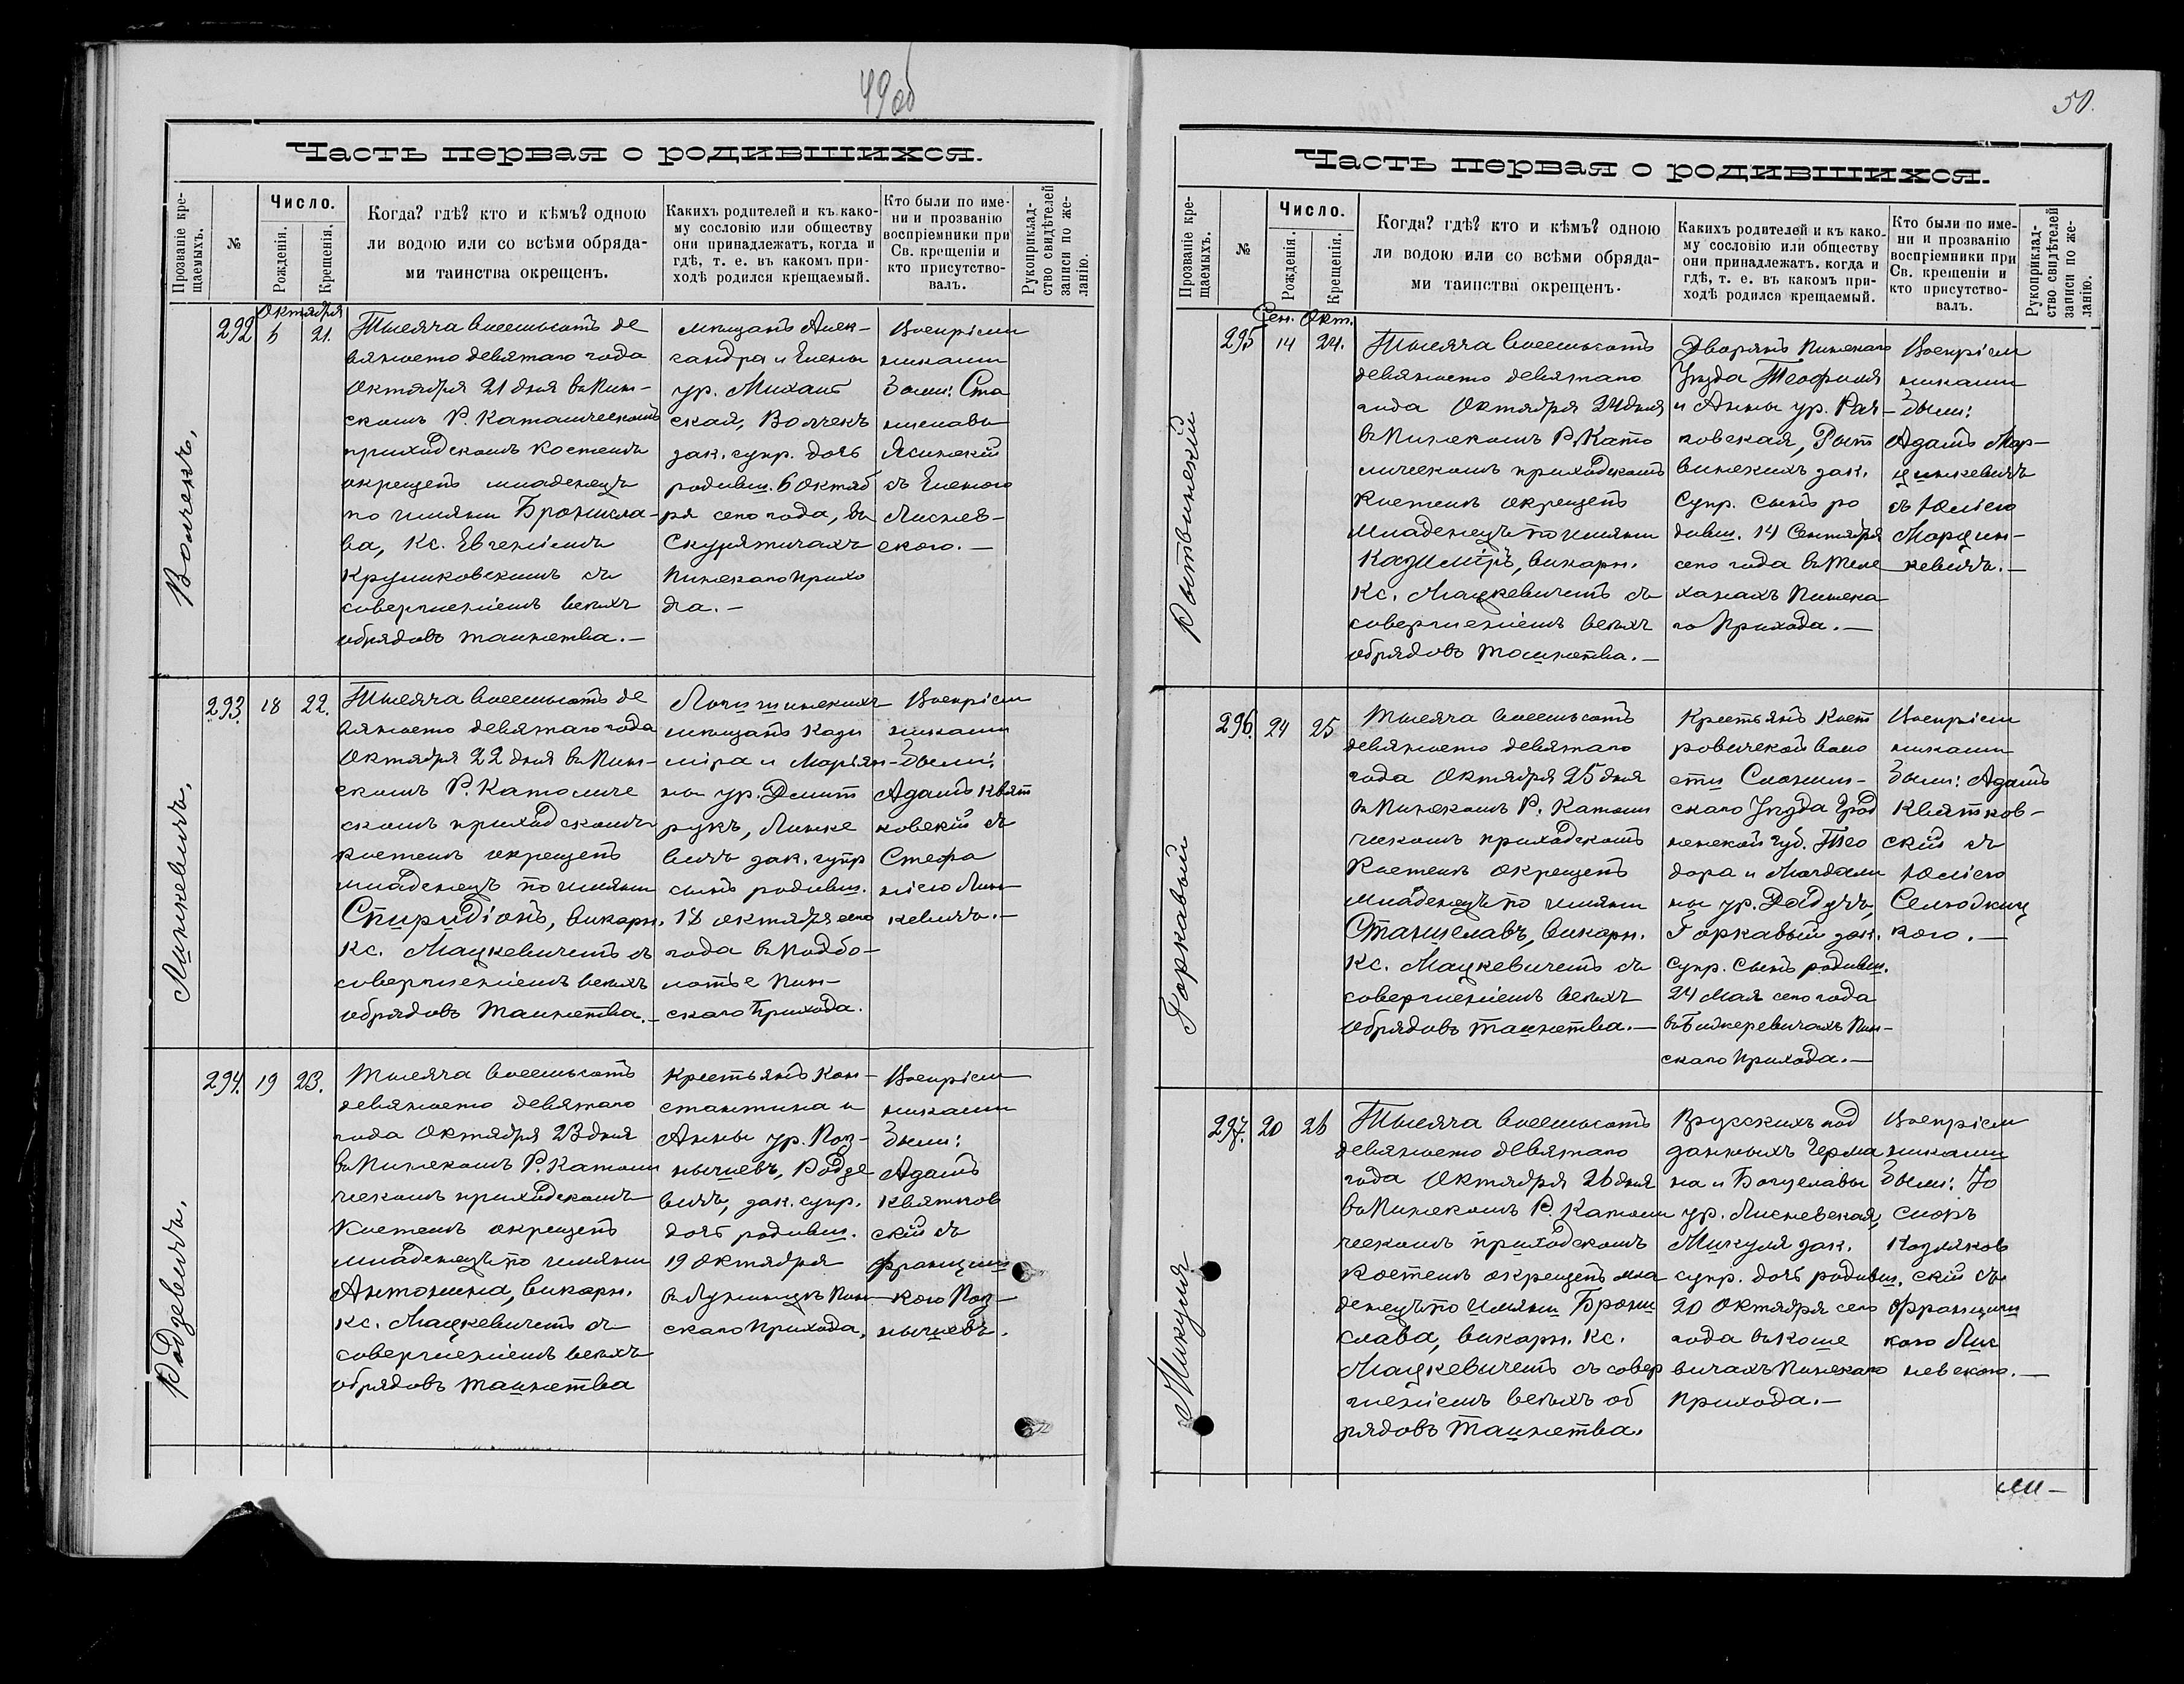 49об
Часть первая о родившихся.
Прозваніе крещаемыхъ.
№
Число.
Рожденія.
Крещенія.
Когда? гдѣ? кто и кѣмъ? одною
ли водою или со всѣми обряда-
ми таинства окрещенъ.
Какихъ родителей и къ како-
му сословію или обществу
они принадлежатъ, когда и
гдѣ, т. е. въ какомъ при-
ходѣ родился крещаемый.
Кто были по име-
ни и прозванію
воспріемники при
Св. крещеніи и
кто присутство-
валъ.
Рукоприклад-
ство свидѣтелей
записи по же-
ланію.
Волчекъ,
292
Октября
6
21.
Тысяча восемьсотъ де
вяносто девятаго года
Октября 21 дня въ Пин-
скомъ Р. Католическомъ
приходскомъ костелѣ
окрещенъ младенецъ
по имяни Бронисла-
ва, Кс. Евгеніемъ
Крушковскимъ съ
совершеніемъ всѣхъ
обрядовъ таинства.—
мѣщанъ Алек-
сандра и Елены
ур. Михаль
ская, Волчекъ
зак. супр. дочь
родивш. 6 Октяб
ря сего года, въ
Скурятичахъ
Пинскаго прихо
да.—
Воспріем
никами
были: Ста
ниславъ
Ясинскій
съ Еленою
Лиснев-
скою.—
Линкевичъ,
293.
18
22.
Тысяча восемьсотъ де
вяносто девятаго года
Октября 22 дня въ Пин-
скомъ Р. Католиче
скомъ приходскомъ
костелѣ окрещенъ
младенецъ по имяни
Спиридіонъ, викарн.
Кс. Мацкевичемъ съ
совершеніемъ всѣхъ
обрядовъ Таинства.—
Логишинскихъ
мѣщанъ Кази
міра и Маріян-
ны ур. Дмит
рукъ, Линке
вичъ зак. супр
сынъ родивш.
18 октября сего
года въ Подбо-
лотье Пин-
скаго Прихода.
Воспріем
никами
были:
Адамъ Квят
ковскій съ
Стефа
ніею Лин
кевичъ.—
Родзевичъ,
294.
19
23.
Тысяча восемьсотъ
девяносто девятаго
года Октября 23 дня
въ Пинскомъ Р. Католи
ческомъ приходскомъ
Костелѣ окрещенъ
младенецъ по имяни
Антонина, викарн.
Кс. Мацкевичемъ съ
совершеніемъ всѣхъ
обрядовъ таинства
Крестьянъ Кон-
стантина и
Анны ур. Поз-
нычевъ, Родзе
вичъ, зак. супр.
дочь родивш.
19 Октября
въ Лунинцѣ Пин-
скаго Прихода,
Воспріем
никами
были:
Адамъ
Квятков
скій съ
Францишк-
кою Поз-
нычевъ.
50.
Часть первая о родившихся.
Прозваніе кре-
щаемыхъ.
№
Число.
Рожденія.
Крещенія.
Когда? гдѣ? кто и кѣмъ? одною
ли водою или со всѣми обряда-
ми таинства окрещенъ.
Какихъ родителей и къ како-
му сословію или обществу
они принадлежатъ. когда и
гдѣ, т. е. въ какомъ при-
ходѣ родился крещаемый.
Кто были по име-
ни и прозванію
воспріемники при
Св. крещеніи и
кто присутство-
валъ.
Рукоприклад-
ство свидѣтелей
записи по же-
ланію.
Рытвинскій
295
Сен. Окт.
14
24.
Тысяча восемьсотъ
девяносто девятаго
года Октября 24 дня
въ Пинскомъ Р. Като
лическомъ приходскомъ
Костелѣ окрещенъ
младенецъ по имяни
Казиміръ, викарн.
Кс. Мацкевичемъ съ
совершеніемъ всѣхъ
обрядовъ таинства.—
Дворянъ Пинскаго
Уѣзда Теофиля
и Анны ур. Рач-
ковская, Рыт
винскихъ зак.
супр. сынъ ро
дивш. 14 Сентября
сего года въ Теле
ханахъ Пинска
го Прихода.—
Воспріем
никами
были:
Адамъ Мар-
цинкевичъ
съ Юліею
Марцин-
кевичъ.—
Горкавый
296.
24
25
Тысяча восемьсотъ
девяносто девятаго
года Октября 25 дня
въ Пинскомъ Р. Католи
ческомъ приходскомъ
Костелѣ окрещенъ
младенецъ по имяни
Станиславъ, викарн.
Кс. Мацкевичемъ съ
совершеніемъ всѣхъ
обрядовъ таинства.—
Крестьянъ Кост
ровичской воло
сти Слоним-
скаго Уѣзда Грод
ненской Губ. Тео
дора и Магдали
ны ур. Радучъ,
Горкавый зак.
супр. сынъ родивш.
24 Мая сего года
въ Бижеревичахъ Пин-
скаго Прихода.—
Воспріем
никами
были: Адамъ
Квятков-
скій съ
Юліею
кою.—
Микуля
297.
20
26
Тысяча восемьсотъ
девяносто девятаго
года Октября 26 дня
въ Пинскомъ Р. Католи
ческомъ приходскомъ
Костелѣ окрещенъ мла
денецъ по имяни Брони
слава, викарн. Кс.
Мацкевичемъ съ совер
шеніемъ всѣхъ об
рядовъ Таинства.
Прусскихъ под
данныхъ Герма
на и Богуславы
ур. Лисневская,
Микуля зак.
супр. дочь родивш.
20 Октября сего
года въ Коше
вичахъ Пинскаго
Прихода.—
Воспріем
никами
были: Ю
Козляков
скій съ
Францишк
кою Лис
невскою.—